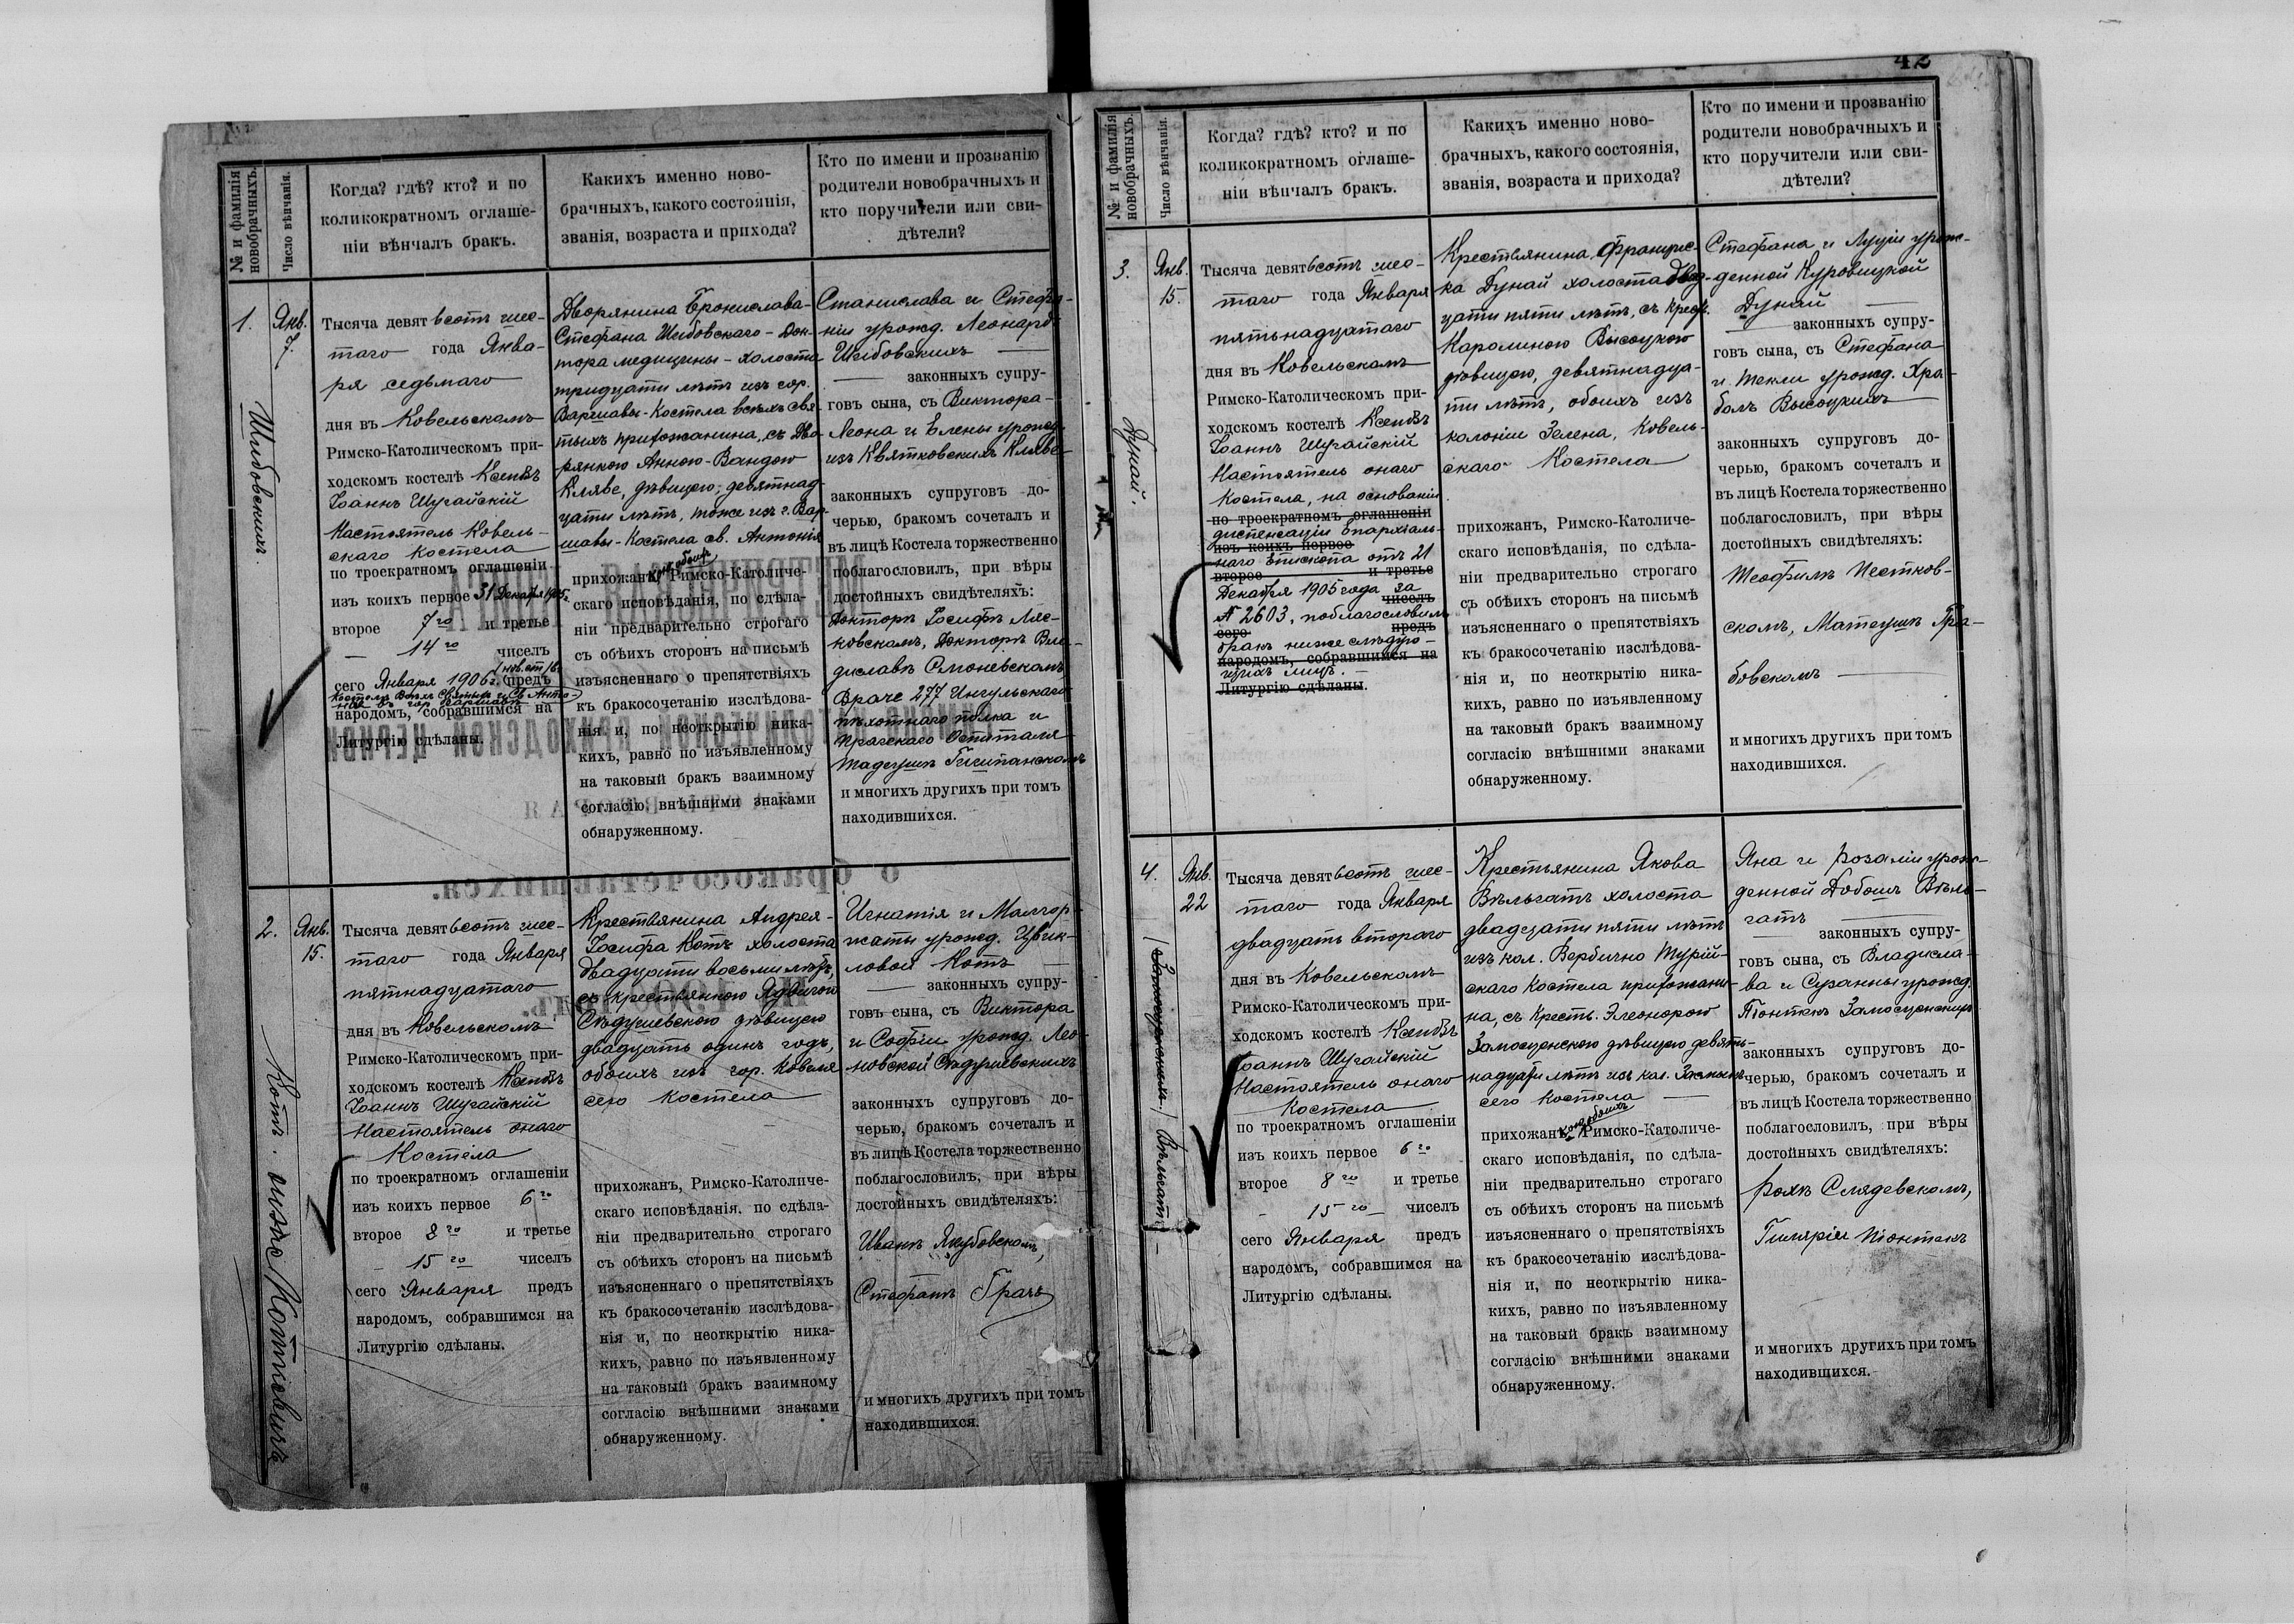 42
№ и фамилія новобрачныхъ.
Число вѣнчанія.
Когда? гдѣ? кто? и по
коликократномъ оглаше-
ніи вѣнчалъ бракъ.
Какихъ именно ново-
брачныхъ, какого состоянія,
званія, возраста и прихода?
Кто по имени и прозванію
родители новобрачныхъ и
кто поручители или сви-
дѣтели?
1.
Янв.
7.
Тысяча девятьсотъ шес-
таго года Янва-
ря седьмаго
дня въ Ковельскомъ
Римско-Католическомъ при-
ходскомъ костелѣ Ксендзъ
Іоаннъ Шугайскій
Настоятель Ковель-
скаго костела
по троекратномъ оглашеніи
изъ коихъ первое 31 Декабря 1905 г.
второе 7го и третье
14го чиселъ
сего Января 1906 г. предъ
народомъ, собравшимся на
Литургію сдѣланы.
Дворянина Бронислава-
Стефана Шибовскаго - Док-
тора медицины - холоста
тридцати лѣтъ изъ гор.
Варшавы - Костела всѣхъ свя-
тыхъ прихожанина, съ Дво-
рянкою Анною-Вандою
Кляве, дѣвицею, девятнад-
цати лѣтъ, тоже изъ г. Вар-
шавы - Костела св. Антонія
прихожанкою, обоихъ Римско-Католиче-
скаго исповѣданія, по сдѣла-
ніи предварительно строгаго
съ обѣихъ сторонъ на письмѣ
изъясненнаго о препятствіяхъ
къ бракосочетанію изслѣдова-
нія и, по неоткрытію ника-
кихъ, равно по изъявленному
на таковый бракъ взаимному
согласію, внѣшними знаками
обнаруженному.
Станислава и Стефа-
ніи урожд. Леонард
Шибовскихъ
законныхъ супру-
говъ сына, съ Виктора-
Леона и Елены урожд.
изъ Квятковскихъ Кляве
законныхъ супруговъ до-
черью, бракомъ сочеталъ и
въ лицѣ Костела торжественно
поблагословилъ, при вѣры
достойныхъ свидѣтеляхъ:
Докторѣ Іосифѣ Ляс-
ковскомъ, Докторѣ Вла-
диславѣ Смоневскомъ
Враче 277 Ингульскаго
пѣхотнаго полка и
Пражскаго Оспиталя
и многихъ другихъ при томъ
находившихся.
Шибовскихъ.
2.
Янв.
15.
Тысяча девятьсотъ шес-
таго года Января
пятнадцатаго
дня въ Ковельскомъ
Римско-Католическомъ при-
ходскомъ костелѣ Ксендзъ
Іоаннъ Шугайскій
Настоятель онаго
Костела
по троекратномъ оглашеніи
изъ коихъ первое 6го
второе 8го и третье
15го чиселъ
сего Января предъ
народомъ, собравшимся на
Литургію сдѣланы.
Крестьянина Андрея-
Іосифа Котъ холоста
двадцати восьми лѣтъ,
съ крестьянкою Ядвигою
Сѣдушевскою дѣвицею
двадцать одинъ годъ,
обоихъ изъ гор. Ковеля
сего Костела
прихожанъ, Римско-Католиче-
скаго исповѣданія, по сдѣла-
ніи предварительно строгаго
съ обѣихъ сторонъ на письмѣ
изъясненнаго о препятствіяхъ
къ бракосочетанію изслѣдова-
нія и, по неоткрытію ника-
кихъ, равно по изъявленному
на таковый бракъ взаимному
согласію внѣшними знаками
обнаруженному.
Игнатія и Малгор-
жаты урожд. Цвик-
ловой Котъ
законныхъ супру-
говъ сына, съ Виктора
и Софіи урожд. Лео-
новской Сѣдушевскихъ
законныхъ супруговъ до-
черью, бракомъ сочеталъ и
въ лицѣ Костела торжественно
поблагословилъ, при вѣры
достойныхъ свидѣтеляхъ:
Иванѣ Якубовскомъ,
Стефанѣ Грачъ
и многихъ другихъ при томъ
находившихся.
Котъ. онже Котевичъ
№ и фамилія новобрачныхъ.
Число вѣнчанія.
Когда? гдѣ? кто? и по
коликократномъ оглаше-
ніи вѣнчалъ бракъ.
Какихъ именно ново-
брачныхъ, какого состоянія,
званія, возраста и прихода?
Кто по имени и прозванію
родители новобрачныхъ и
кто поручители или сви-
дѣтели?
3.
Янв.
15.
Тысяча девятьсотъ шес-
таго года Января
пятьнадцатаго
дня въ Ковельскомъ
Римско-Католическомъ при-
ходскомъ костелѣ Ксендзъ
Іоаннъ Шугайскій
Настоятель онаго
Костела, на основаніи
по троекратномъ оглашеніи
диспенсаціи Епархіаль-
изъ коихъ первое
наго Епископа отъ 21
второе и третье
Декабря 1905 года за
чиселъ
№ 2603, поблагословилъ
сего предъ
бракъ ниже слѣдую-
народомъ, собравшимся на
щихъ лицъ.
Литургію сдѣланы.
Крестьянина Францис-
ка Дунай холоста двад-
цати пяти лѣтъ, съ крест.
Каролиною Высоцкою
дѣвицею, девятнадца-
ти лѣтъ, обоихъ изъ
колоніи Зелена, Ковель-
скаго Костела
прихожанъ, Римско-Католиче-
скаго исповѣданія, по сдѣла-
ніи предварительно строгаго
съ обѣихъ сторонъ на письмѣ
изъясненнаго о препятствіяхъ
къ бракосочетанію изслѣдова-
нія и, по неоткрытію ника-
кихъ, равно по изъявленному
на таковый бракъ взаимному
согласію внѣшними знаками
обнаруженному.
Стефана и Луціи урож-
денной Куровицкой
Дунай
законныхъ супру-
говъ сына, съ Стефана
и Текли урожд. Хра-
болъ Высоцкихъ
законныхъ супруговъ до-
черью, бракомъ сочеталъ и
въ лицѣ Костела торжественно
поблагословилъ, при вѣры
достойныхъ свидѣтеляхъ:
Теофилѣ Пестков-
скомъ, Матеушѣ Гра-
бовскомъ
и многихъ другихъ при томъ
находившихся.
Дунай.
4.
Янв.
22
Тысяча девятьсотъ шес-
таго года Января
двадцать втораго
дня въ Ковельскомъ
Римско-Католическомъ при-
ходскомъ костелѣ Ксендзъ
Іоаннъ Шугайскій
Настоятель онаго
Костела
по троекратномъ оглашеніи
изъ коихъ первое 6го
второе 8го и третье
15го чиселъ
сего Января предъ
народомъ, собравшимся на
Литургію сдѣланы.
Крестьянина Якова
Вѣльгатъ холоста
двадцати пяти лѣтъ
изъ кол. Вербично Турій-
скаго Костела прихожани-
на, съ Кресть. Элеонорою
Замосценскою дѣвицею девять-
надцати лѣтъ изъ кол.
сего Костела
прихожанкою, обоихъ Римско-Католиче-
скаго исповѣданія, по сдѣла-
ніи предварительно строгаго
съ обѣихъ сторонъ на письмѣ
изъясненнаго о препятствіяхъ
къ бракосочетанію изслѣдова-
нія и, по неоткрытію ника-
кихъ, равно по изъявленному
на таковый бракъ взаимному
согласію внѣшними знаками
обнаруженному.
Яна и Розаліи урож-
денной Добошъ Вѣль-
гатъ
законныхъ супру-
говъ сына, съ Владисла-
ва и Сузанны урожд.
Піонтекъ Замосценскихъ
законныхъ супруговъ до-
черью, бракомъ сочеталъ и
въ лицѣ Костела торжественно
поблагословилъ, при вѣры
достойныхъ свидѣтеляхъ:
Рохѣ Слядевскомъ,
Гиляріи Піонтекъ
и многихъ другихъ при томъ
находившихся.
Вѣльгатъ